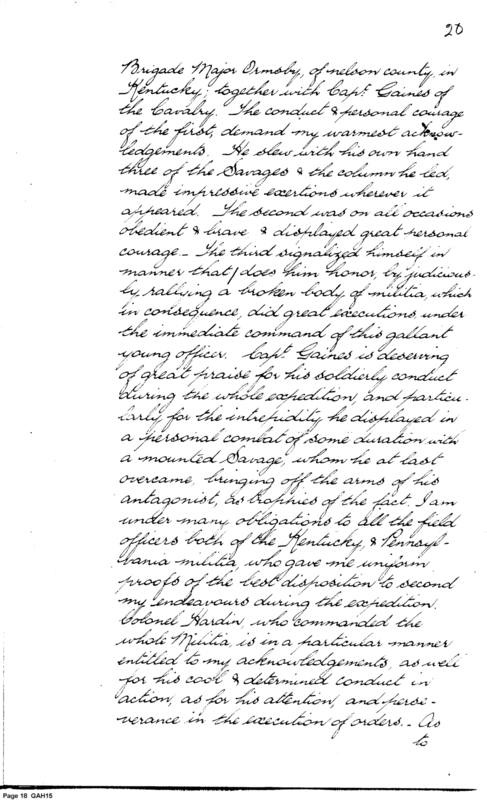 20
Brigade Major Ormsby, of nelson county, in
Kentucky; together with Capt. Gaines of
the Cavalry. The conduct & personal courage
of the first, demand my warmest acknow-
ledgements. He slew with his own hand
three of the Savages & the column he led,
made impressive exertions wherever it
appeared. The second was on all occasions
obedient & brave & displayed great personal
courage - The third signalized himself in
manner that does him honor, by judicious-
ly rallying a broken body of militia, which
in consequence, did great executions under
the immediate command of this gallant
young officer. Capt. Gaines is deserving
of great praise for his soldierly conduct
during the whole expedition, and particu-
larly, for the intrepidity he displayed in
a personal combat of some duration with
a mounted Savage, whom he at last
overcame, bringing off the arms of his
antagonist, as trophies of the fact. I am
under many obligations to all the field
officers both of the Kentucky, & Pennsyl-
vania militia, who gave me uniform
proofs of the best disposition to second
my endeavours during the expedition.
Colonel Hardin, who commanded the
whole Militia, is in a particular manner
entitled to my acknowledgements, as well
for his cool & determined conduct in
action, as for his attention, and perse-
verance in the execution of orders. - As
to
Page 18 GAH15